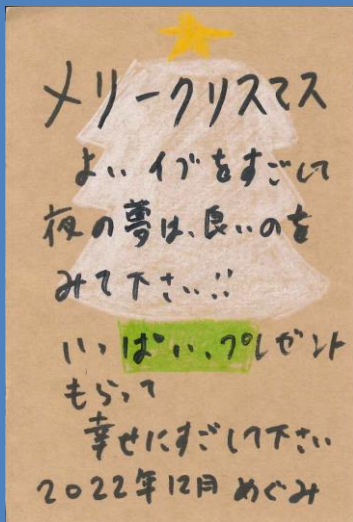 メリークリスマス
よいイブをすごして
夜の夢は、良いのを
みて下さい!!
いっぱい、プレゼント
もらって
幸せにすごして下さい
2022年12月 めぐみ